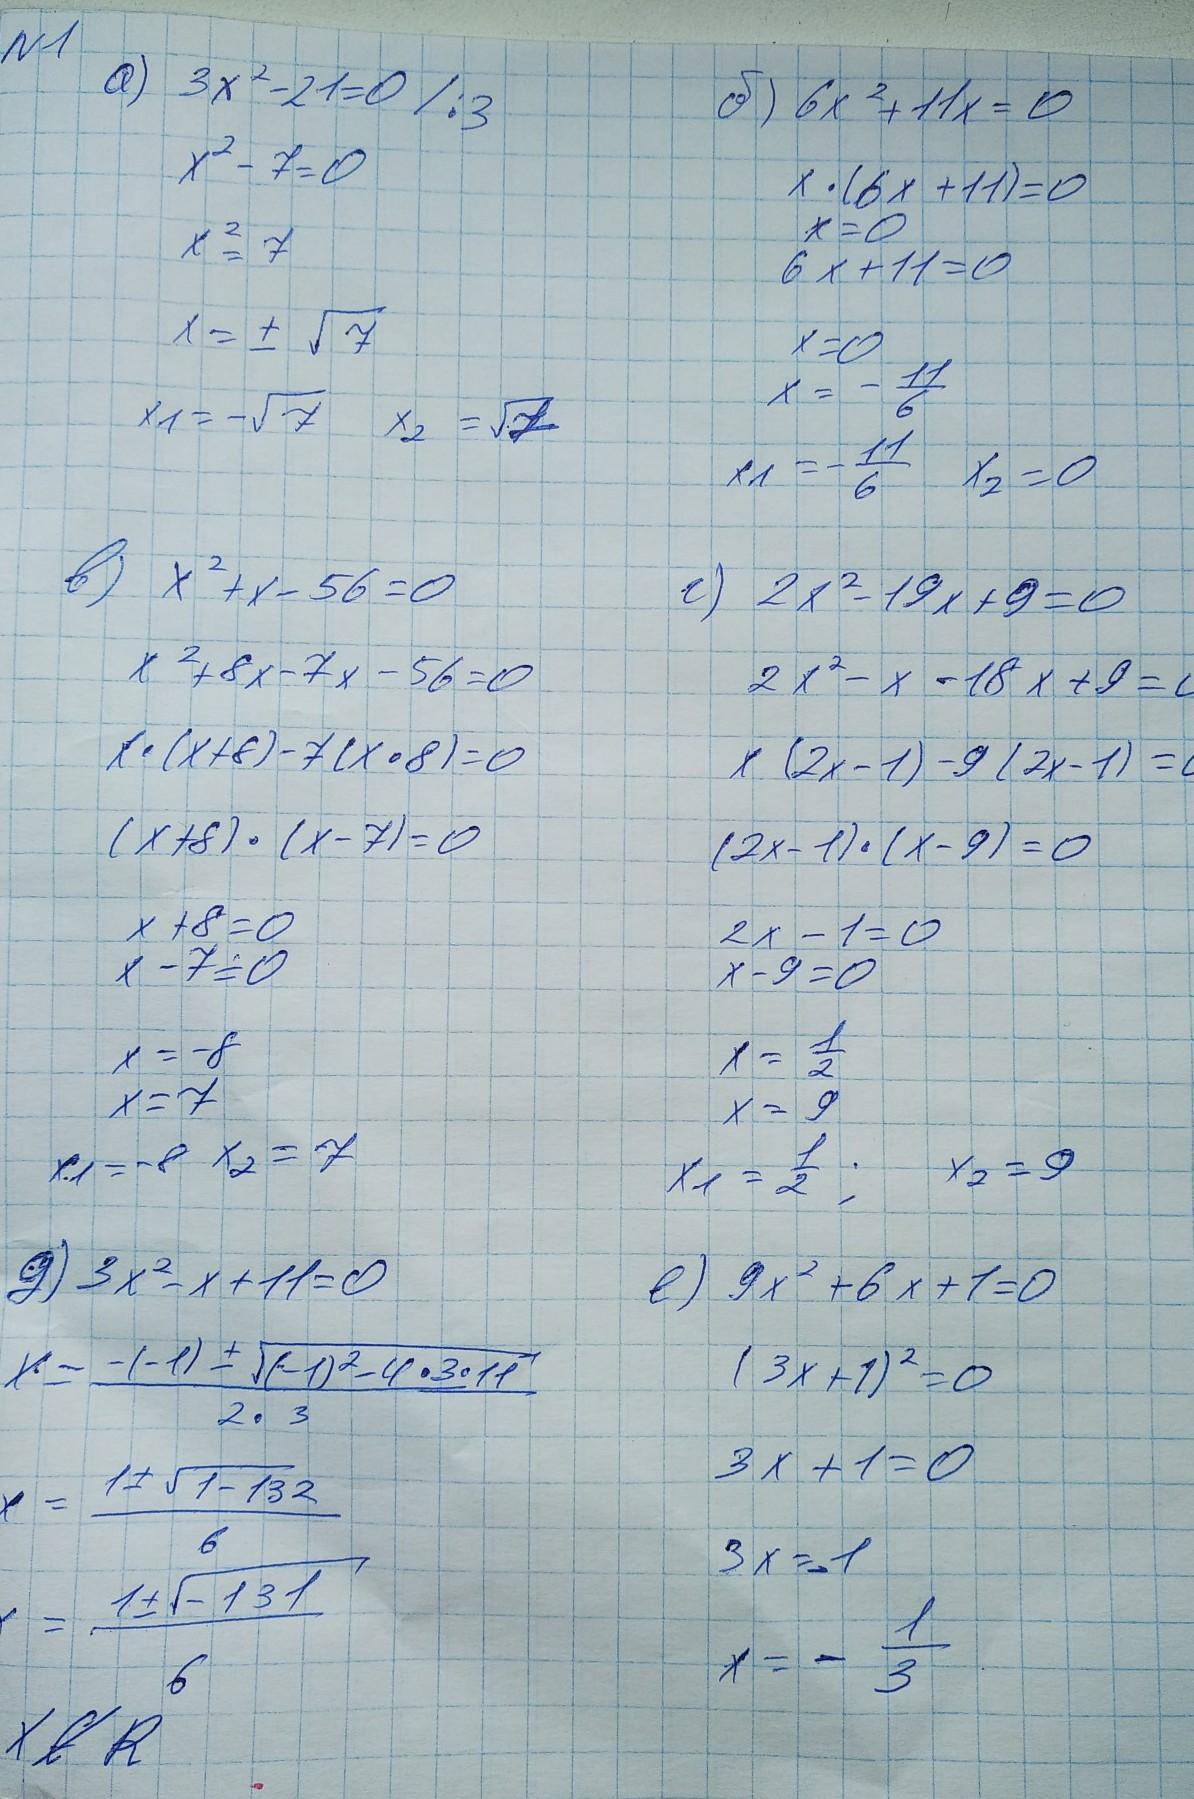 N1
а) 3x² - 21 = 0 / :3
x² - 7 = 0
x² = 7
x = ± √7
x1 = -√7 x2 = √7
б) 6x² + 11x = 0
x · (6x + 11) = 0
x = 0
6x + 11 = 0
x = 0
x = - 11/6
x1 = - 11/6 x2 = 0
в) x² + x - 56 = 0
x² + 8x - 7x - 56 = 0
x · (x + 8) - 7(x · 8) = 0
(x + 8) · (x - 7) = 0
x + 8 = 0
x - 7 = 0
x = -8
x = 7
x1 = -8 x2 = 7
г) 2x² - 19x + 9 = 0
2x² - x - 18x + 9 = 0
x (2x - 1) - 9 (2x - 1) = 0
(2x - 1) · (x - 9) = 0
2x - 1 = 0
x - 9 = 0
x = 1/2
x = 9
x1 = 1/2 ; x2 = 9
д) 3x² - x + 11 = 0
x = (-(-1) ± √((-1)² - 4 · 3 · 11)) / (2 · 3)
x = (1 ± √(1 - 132)) / 6
x = (1 ± √(-131)) / 6
x ∉ R
е) 9x² + 6x + 1 = 0
(3x + 1)² = 0
3x + 1 = 0
3x = -1
x = - 1/3